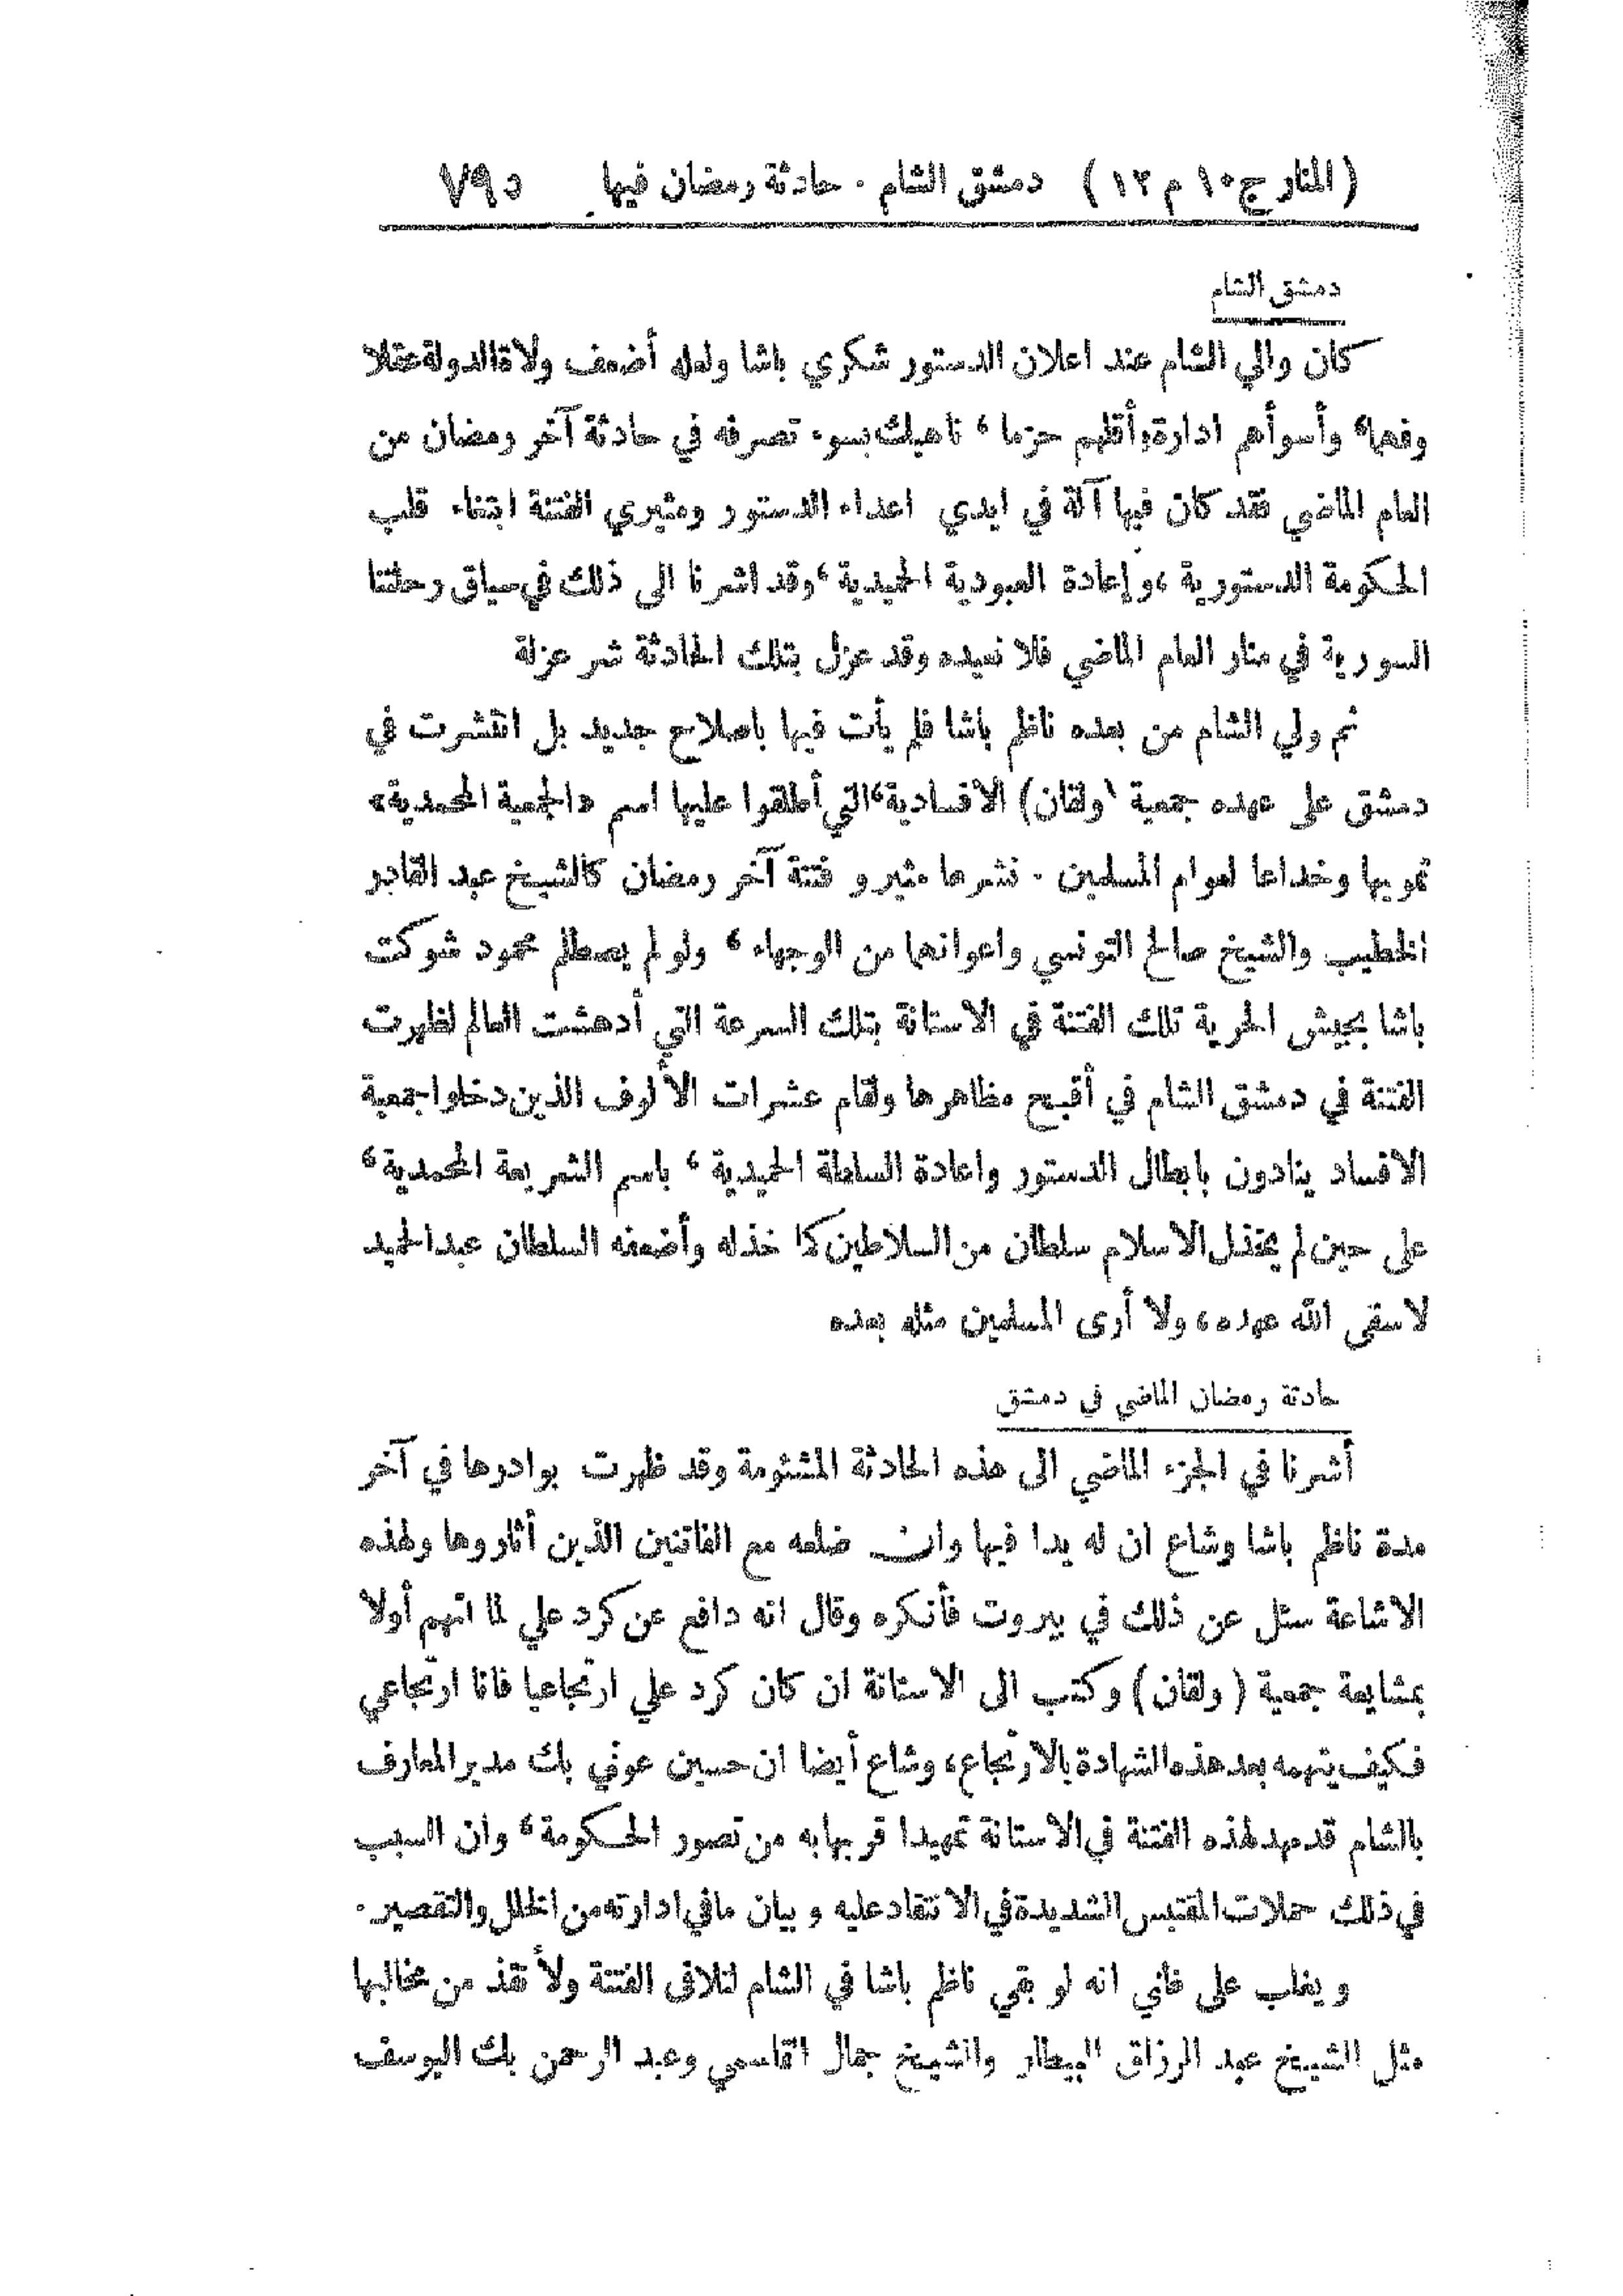 (المنار ج ١٠ م ١٢) دمشق الشام . حادثة رمضان فيها ٧٩٥
دمشق الشام
كان والي الشام عند اعلان الدستور شكري باشا ولعله أضعف ولاة الدولة عقلا
وفهما، وأسوأهم ادارة وأقلهم حزما، ناهيك بسوء تصرفه في حادثة آخر رمضان من
العام الماضي فقد كان فيها آلة في ايدي اعداء الدستور ومثيري الفتنة ابتغاء قلب
الحكومة الدستورية، وإعادة العبودية الحميدية، وقد اشرنا الى ذلك في سياق رحلتنا
السورية في منار العام الماضي فلا نعيده وقد عزل بتلك الحادثة شر عزلة
ثم ولي الشام من بعده ناظم باشا فلم يأت فيها باصلاح جديد بل انتشرت في
دمشق على عهده جمعية (ولقان) الافسادية، التي أطلقوا عليها اسم «الجمعية المحمدية»
تمويها وخداعا لعوام المسلمين . نشرها مثيرو فتنة آخر رمضان كالشيخ عبد القادر
الخطيب والشيخ صالح التونسي واعوانهما من الوجهاء، ولو لم يصطلم محمود شوكت
باشا بجيش الحرية تلك الفتنة في الاستانة بتلك السرعة التي أدهشت العالم لظهرت
الفتنة في دمشق الشام في أقبح مظاهرها ولقام عشرات الألوف الذين دخلوا جمعية
الافساد ينادون بابطال الدستور واعادة السلطة الحميدية، باسم الشريعة المحمدية،
على حين لم يخذل الاسلام سلطان من السلاطين كما خذله وأضعفه السلطان عبد الحميد
لا سقى الله عهده، ولا أرى المسلمين مثله بعده
حادثة رمضان الماضي في دمشق
أشرنا في الجزء الماضي الى هذه الحادثة المشئومة وقد ظهرت بوادرها في آخر
مدة ناظم باشا وشاع ان له يدا فيها وان ضلعه مع الفاتنين الذين أثاروها ولهذه
الاشاعة سئل عن ذلك في بيروت فأنكره وقال انه دافع عن كرد علي لما اتهم أولا
بمشايعة جمعية (ولقان) وكتب الى الاستانة ان كان كرد علي ارتجاعيا فانا ارتجاعي
فكيف يتهمه بعد هذه الشهادة بالارتجاع، وشاع أيضا ان حسين عوفي بك مدير المعارف
بالشام قد مهد لهذه الفتنة في الاستانة تمهيدا قربها به من تصور الحكومة، وان السبب
في ذلك حملات المقتبس الشديدة في الانتقاد عليه وبيان مافي ادارته من الخلل والتقصير .
ويغلب على ظني انه لو بقي ناظم باشا في الشام لتلافى الفتنة ولأنقذ من مخالبها
مثل الشيخ عبد الرزاق البيطار والشيخ جمال القاسمي وعبد الرحمن بك اليوسف